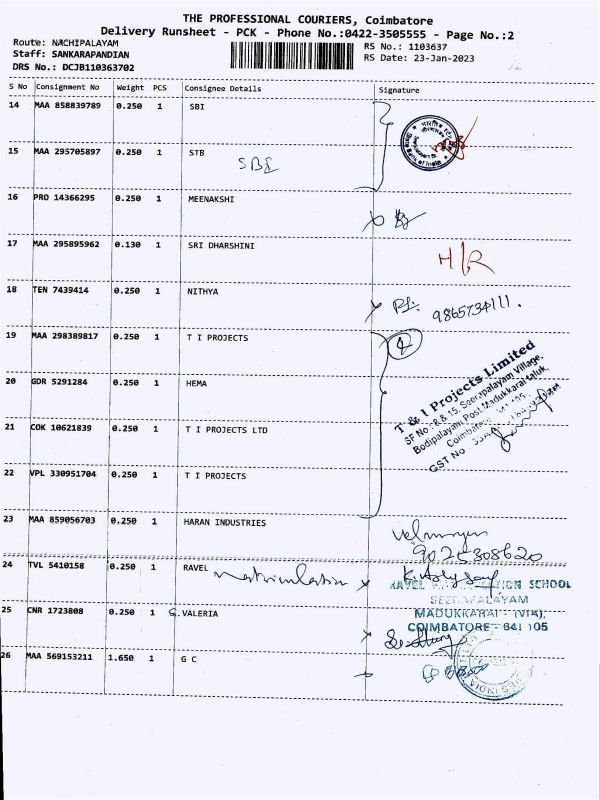 THE PROFESSIONAL COURIERS, Coimbatore
Delivery Runsheet - PCK - Phone No.:0422-3505555 - Page No.:2
Route: NACHIPALAYAM
RS No.: 1103637
Staff: SANKARAPANDIAN
RS Date: 23-Jan-2023
DRS No.: DCJB110363702
S No Consignment No Weight PCS Consignee Details Signature
14 MAA 858839789 0.250 1 SBI
15 MAA 295705897 0.250 1 STB
SBI
State Bank of India
16 PRO 14366295 0.250 1 MEENAKSHI
17 MAA 295895962 0.130 1 SRI DHARSHINI
H/R
18 TEN 7439414 0.250 1 NITHYA
9865734111.
19 MAA 298389817 0.250 1 T I PROJECTS
4
20 GDR 5291284 0.250 1 HEMA
21 COK 10621839 0.250 1 T I PROJECTS LTD
22 VPL 330951704 0.250 1 T I PROJECTS
T & I Projects Limited
SF No : 8 & 15, Seerapalayam Village,
Bodipalayam Post, Madukkarai taluk,
Coimbatore
GST No
23 MAA 859056703 0.250 1 HARAN INDUSTRIES
Velmurugan
9025308620
24 TVL 5410158 0.250 1 RAVEL matriculation
RAVEL SCHOOL
SEERAPALAYAM
MADUKKARAI - (VIA),
COIMBATORE - 641 105
25 CNR 1723808 0.250 1 S.VALERIA
26 MAA 569153211 1.650 1 G C